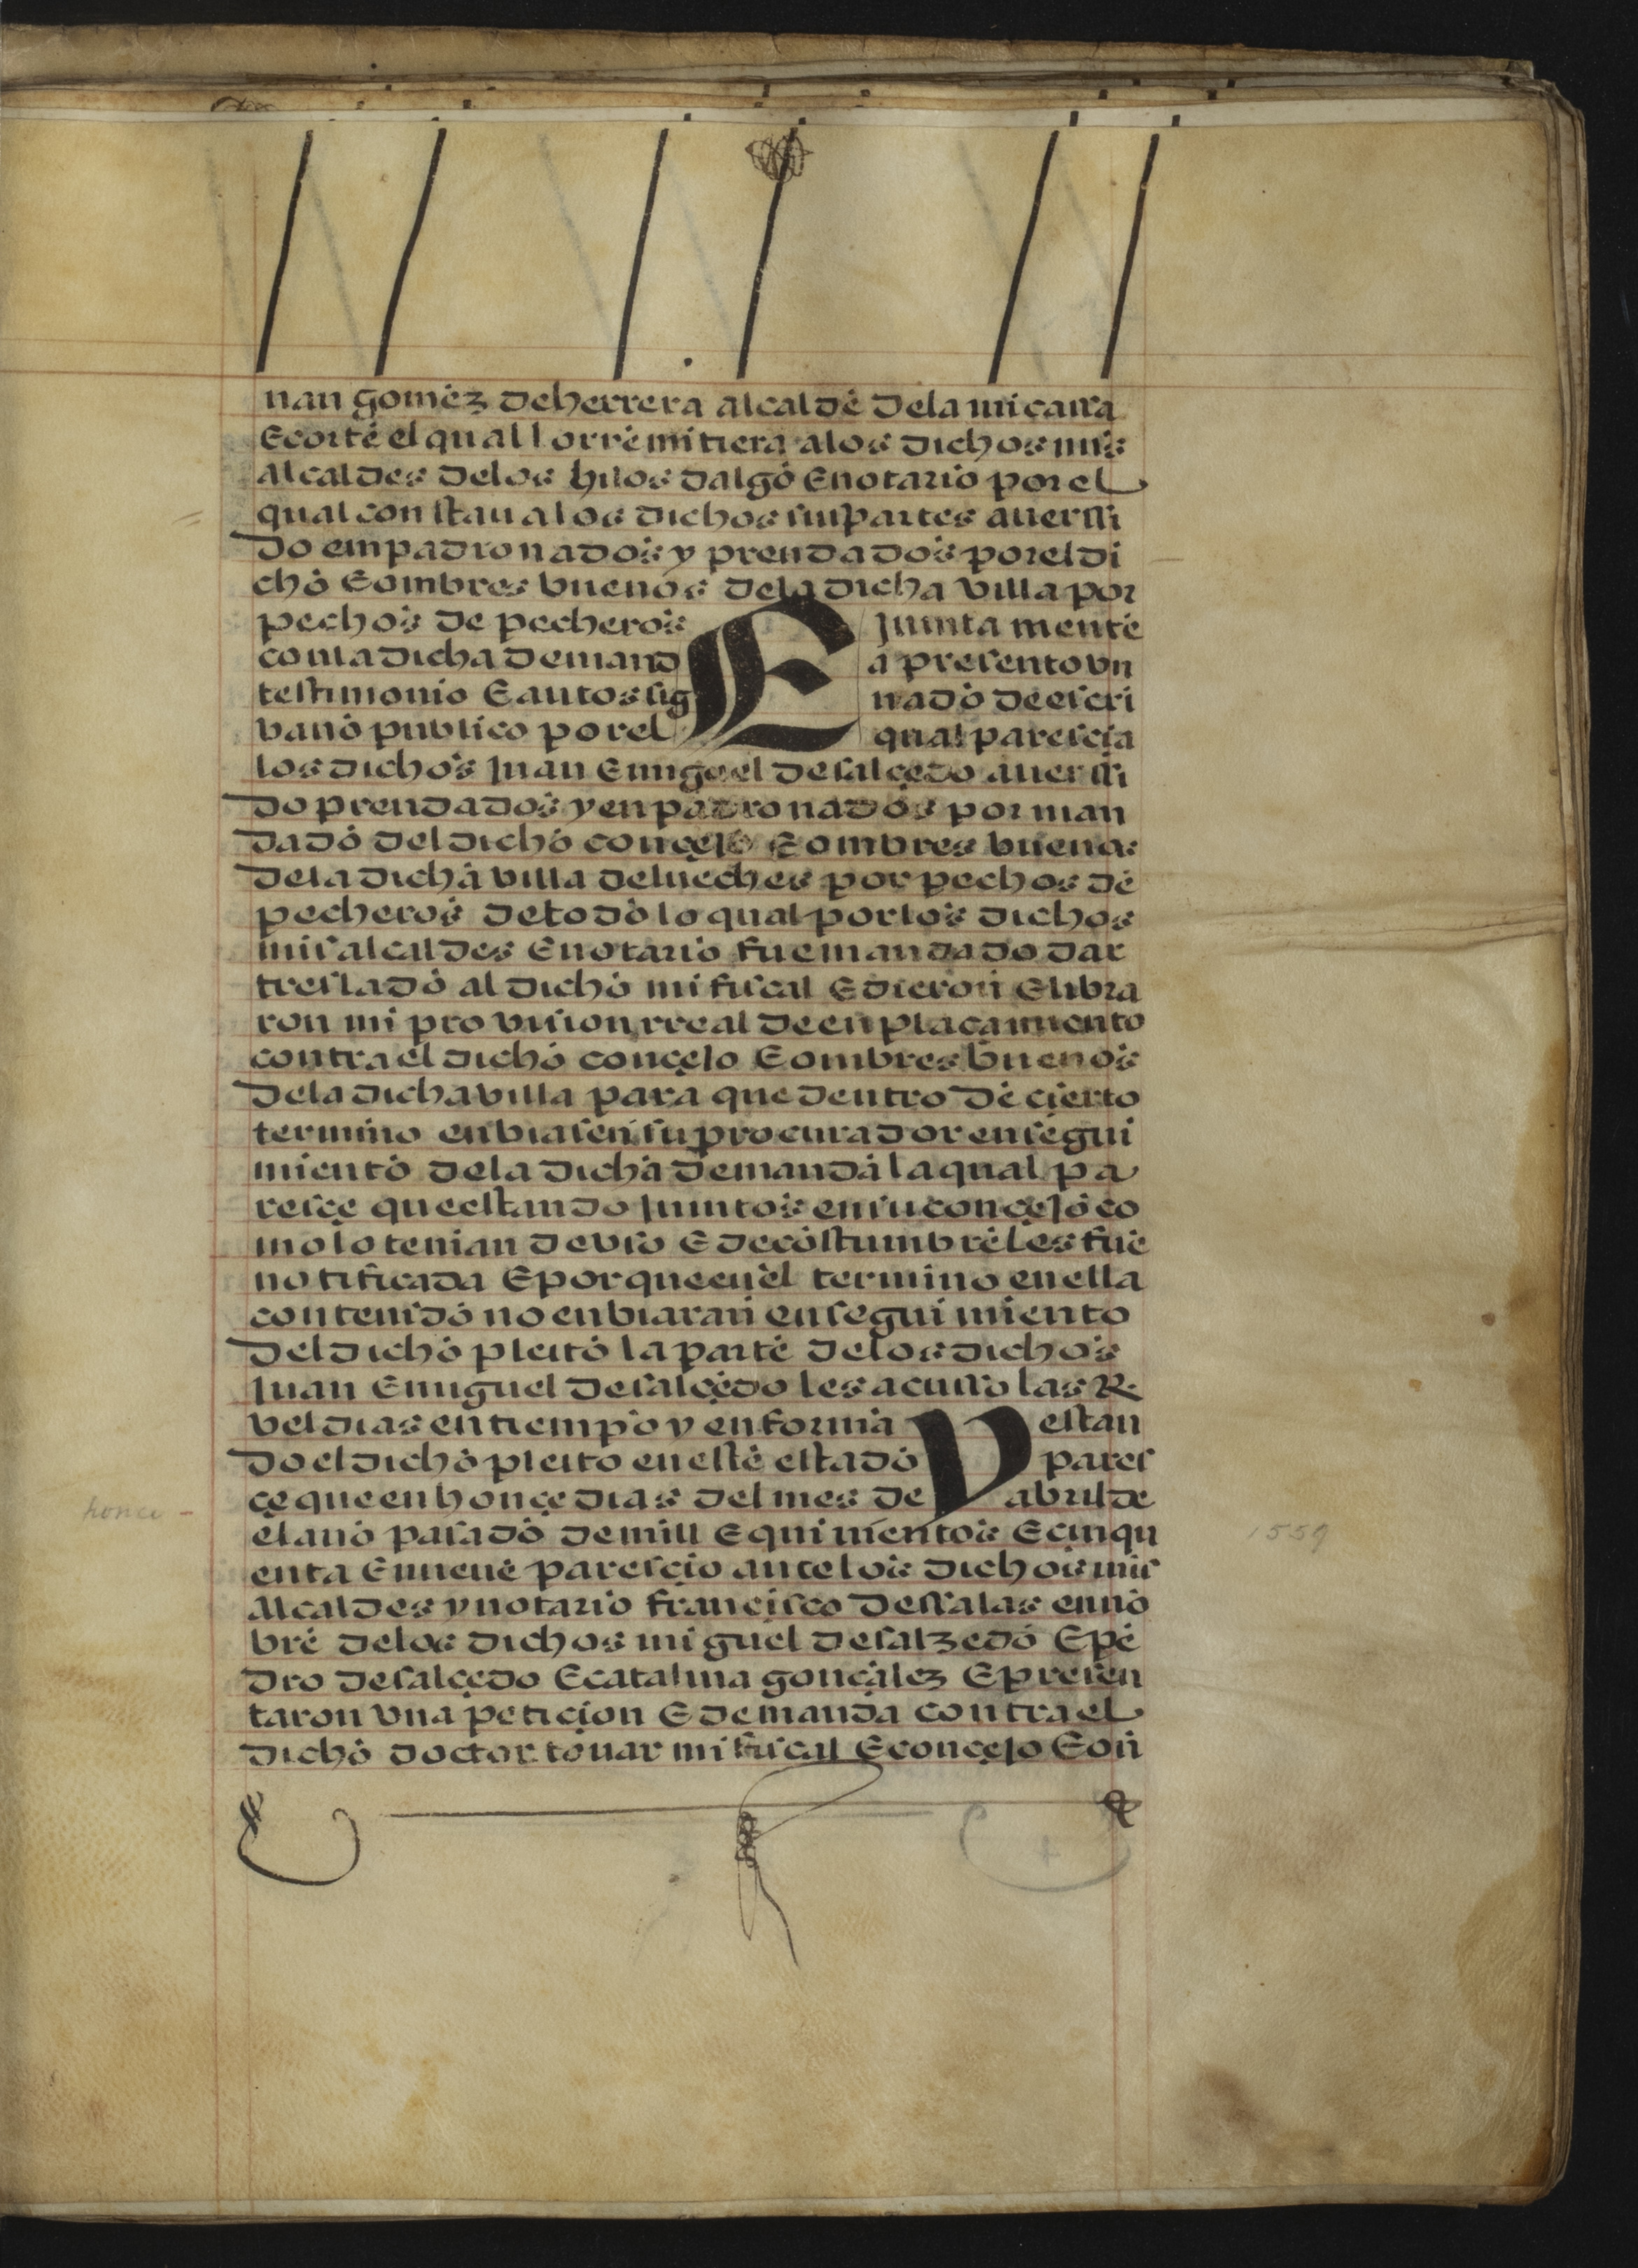 nan gomez de herrera alcalde dela mi cassa
E corte el qual lo rremitiera alos dichos mis
alcaldes delos hijos dalgo E notario por el
qual constaua los dichos sus partes auer si
do empadronados y prendados por el di
cho E ombres buenos dela dicha villa por
pechos de pecheros E Junta mente
con la dicha demanda presento vn
testimonio E autos signado de escri
vano publico por el qual parescia
los dichos Juan E miguel de salçedo auer si
do prendados y enpadronados por man
dado del dicho conçejo E ombres buenos
dela dicha villa de lueches por pechos de
pecheros de todo lo qual por los dichos
mis alcaldes E notario fue mandado dar
treslado al dicho mi fiscal E dieron E libra
ron mi provision rreal de enplaçamiento
contra el dicho conçejo E ombres buenos
dela dicha villa para que dentro de çierto
termino enbiasen su procurador en segui
miento dela dicha demanda la qual pa
resçe que estando Juntos en su conçejo co
mo lo tenian de vso E de costumbre les fue
notificada E porque en el termino en ella
contenido no enbiaran en seguimiento
del dicho pleito la parte delos dichos
Juan E miguel de salçedo les acusso las Re
veldias en tiempo y en forma Y estan
do el dicho pleito en este estado pares
çe que en honçe dias del mes de abril de
el ano pasado de mill E quinientos E cinqu
enta E nueve paresçio ante los dichos mis
alcaldes y notario françisco de ssalas en no
bre delos dichos miguel de salzedo E pe
dro de salçedo E catalina gonçalez E presen
taron vna petiçion E demanda contra el
dicho doctor tovar mi fiscal E conçejo E on
honce -
1559